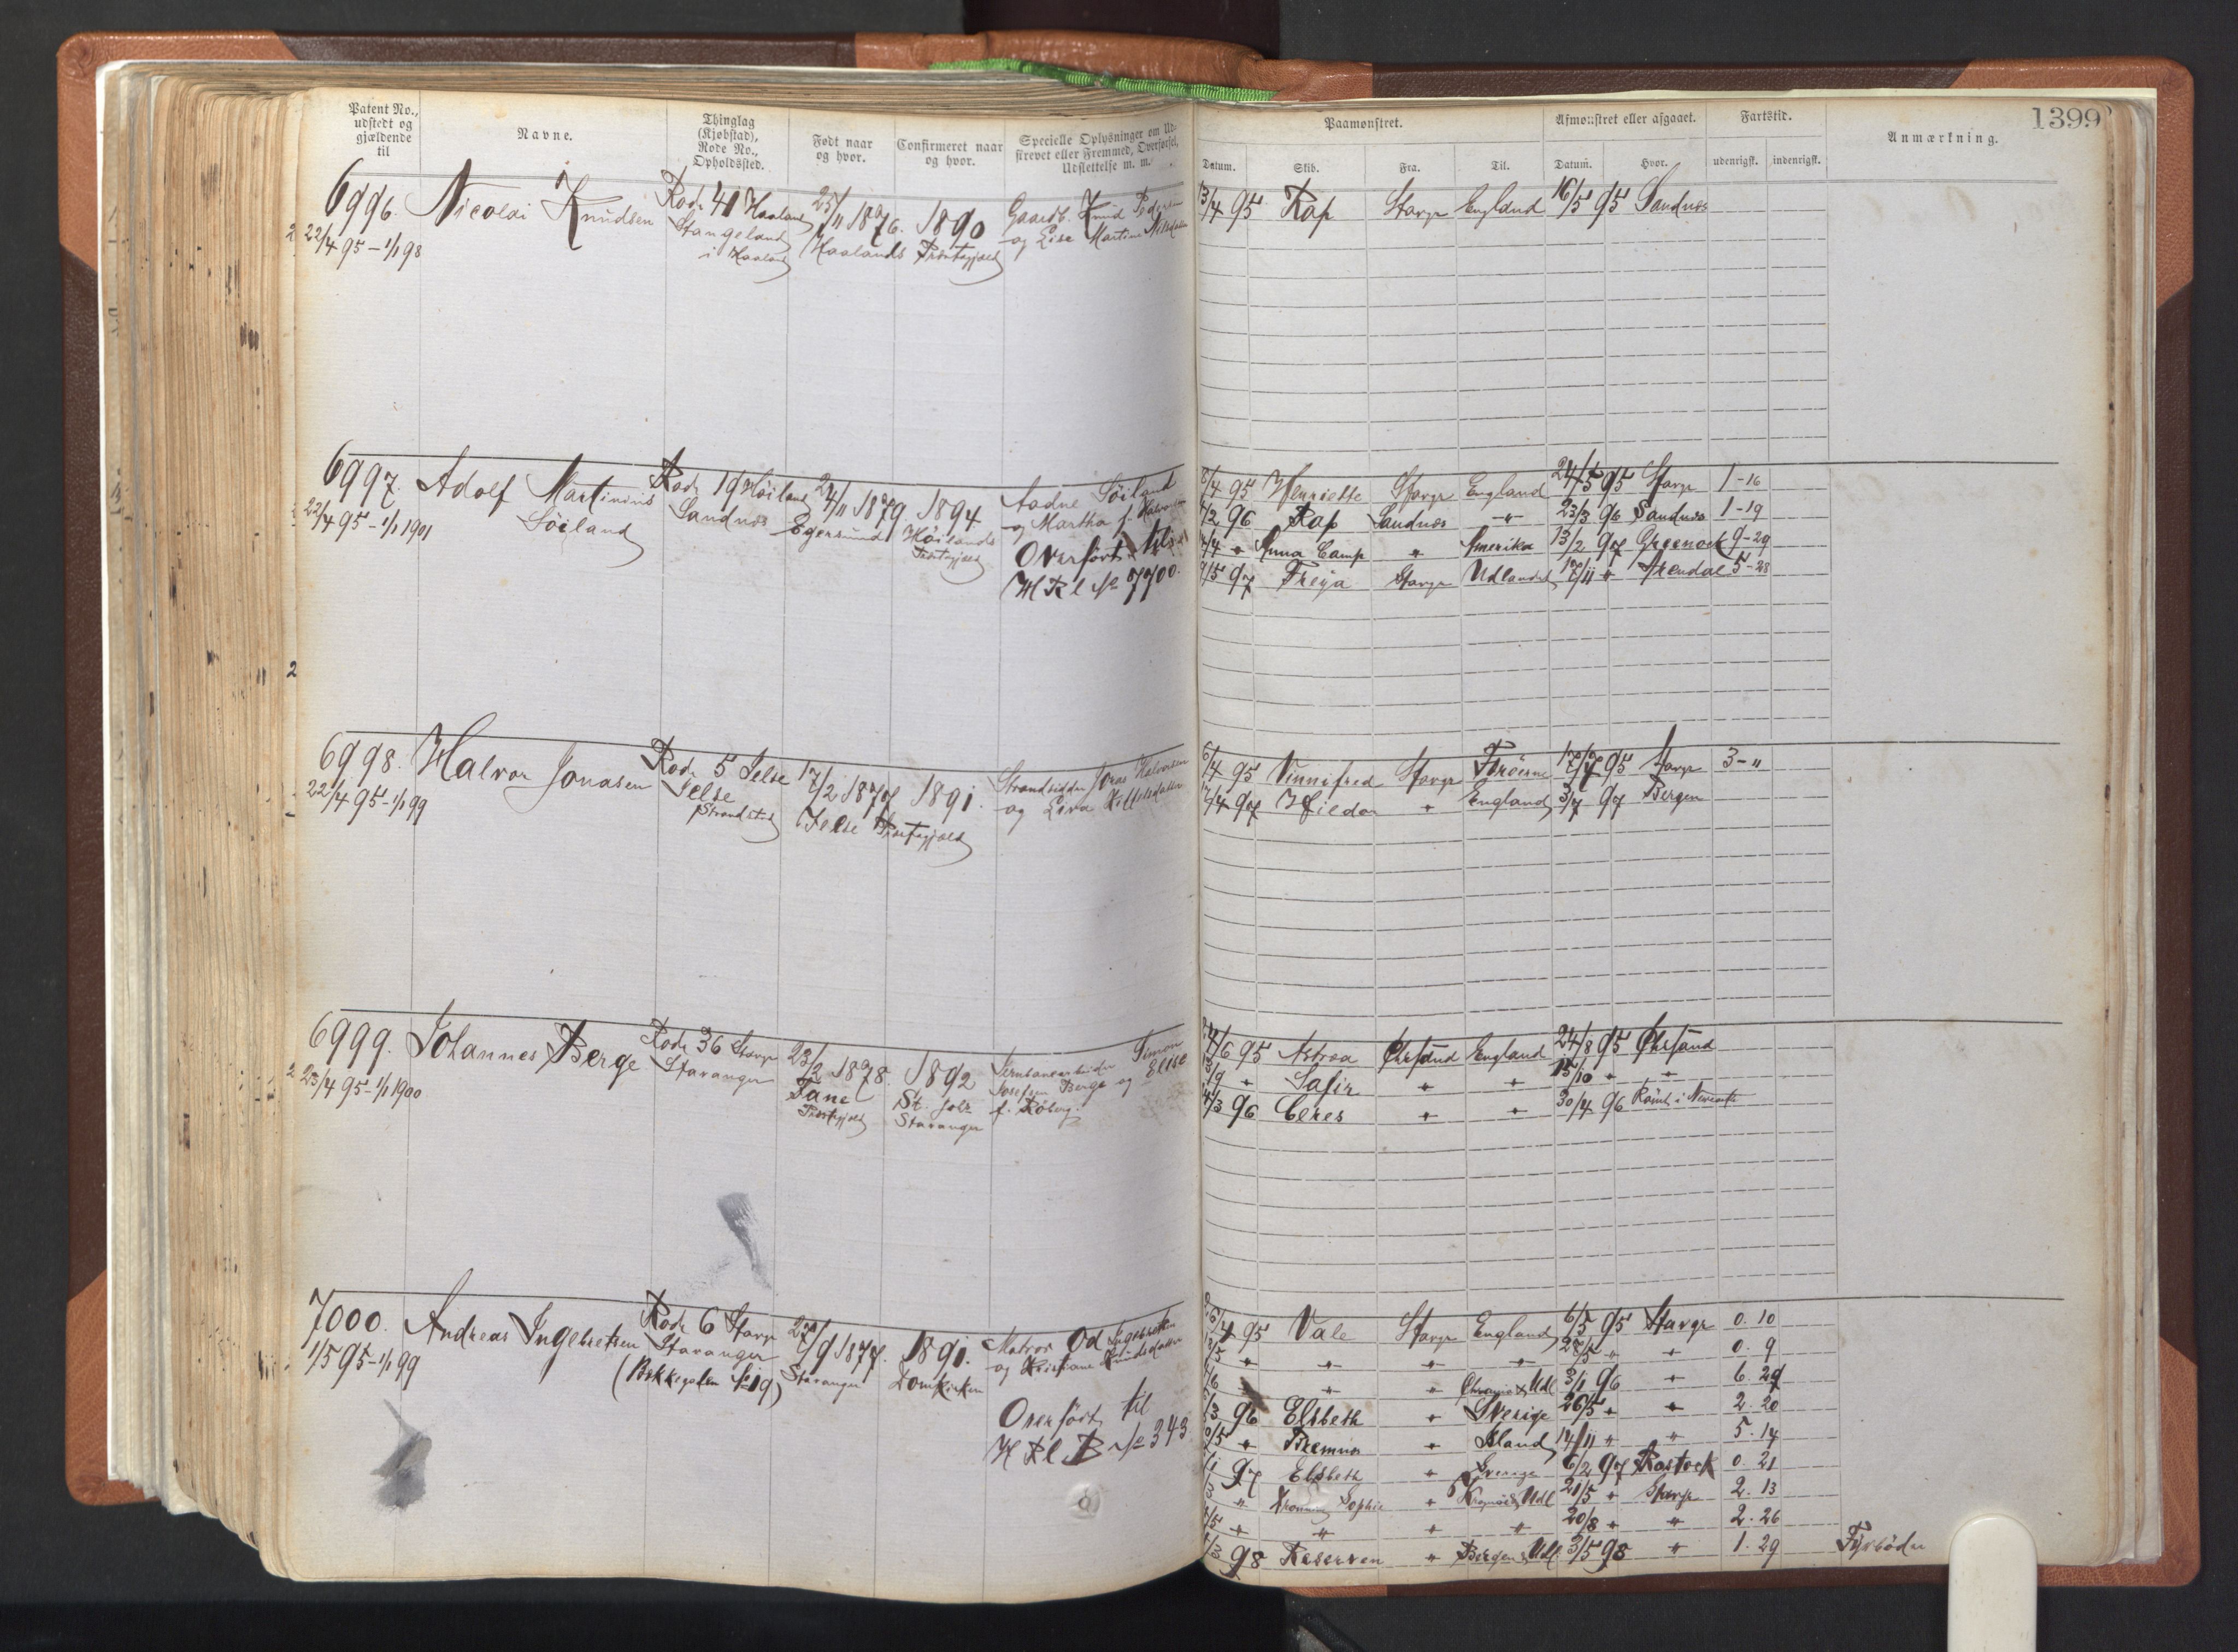 1399
Patent No., udstedt og gjældende til
Navne.
Thinglag (Kjøbstad), Rode No., Opholdssted.
Født naar og hvor.
Confirmeret naar og hvor.
Specielle Oplysninger om Udskrevet eller Fremmed, Overførsel, Udslettelse m. m.
Paamønstret.
Afmønstret eller afgaaet.
Fartstid.
Anmærkning.
Datum. Skib. Fra. Til. Datum. Hvor. udenrigsk. indenrigsk.
6996. Nicolai Knudsen Rode 41 Haaland 25/11 1876. 1890 Gaardb. Knud Pedersen
22/4 95 – 1/1 98 Stangeland Haalands Præstegjæld og Lise Martine
i Haaland
13/4 95 Rap Stavgr England 16/5 95 Sandnes
6997. Adolf Martinius Rode 19 Høiland 24/11 1879 1894 Aadne Söiland
22/4 95 – 1/1 1901 Söiland Sandnes Egersund Høilands Præstegjæld og Martha f. Halvorsen
Overført til
H Rl No 7700.
8/4 95 Henriette Stavgr England 24/5 95 Stavgr 1-16
/2 96 Rap Sandnes " 23/3 96 Sandnes 1-19
/4 " Anna Camp " Amerika 13/2 97 Greenock 9-29
/5 97 Freya Stavgr Udlandet 17/11 " Arendal 5-28
6998. Halvor Jonasen Rode 5 Jelse 17/2 1877 1891. Strandsidder Jonas Halvorsen
22/4 95 – 1/1 99 Jelse Jelse Præstegjæld og Kittelsdatter
Strandsted
6/4 95 Vinnifred Stavgr 17/7 95 Stavgr 3-"
/4 97 Hildor " England 3/7 97 Bergen
6999. Johannes Berge Rode 36 Stavgr 23/2 1878. 1892 Jernbanearbeider Simon
23/4 95 – 1/1 1900 Stavanger Fane St. Joh. Josefsen Berge og Elise
Præstegjæld Stavanger f.
/6 95 Astrea Chrsand England 24/8 95 Chrsand
/9 " Safir " " 15/10 " "
/3 96 Ceres " " 30/4 96
7000. Andreas Ingebretsen Rode 6 Stavgr 27/9 1877. 1891. Matros Od Ingebretsen
1/5 95 – 1/1 99 Stavanger Stavanger Domkirken og Kristiane Knudsdatter
(Bakkegaten No 19)
Overført til
H Rl B No 343
/4 95 Vale Stavgr England 6/5 95 Stavgr 0. 10
/5 " " " " 28/5 " " 0. 9
/6 " " " & Udl 3/1 96 " 6. 27
/3 96 Elsbeth " Sverige 26/5 " " 2. 20
/5 " Bremnes " Island 14/11 " " 5. 14
/1 97 Elsbeth " Sverige 6/2 97 Rostock 0. 21
/3 " Dronning Sophie " & Udl 21/5 " Stavgr 2. 13
/5 " " " " 20/8 " " 2. 26
/3 98 Reserven " Bergen & Udl 3/5 98 " 1. 29 Fyrbøder